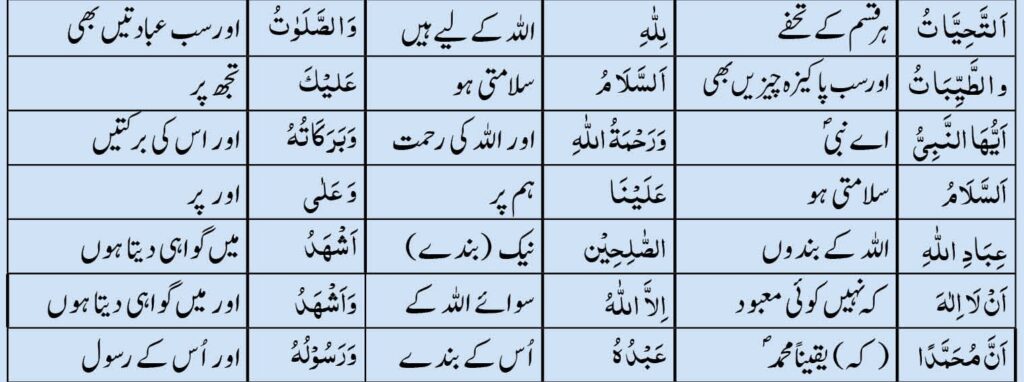 اَلتَّحِيَّاتُ ہر قسم کے تحفے لِلّٰهِ اللہ کے لیے ہیں وَالصَّلَوٰتُ اور سب عبادتیں بھی
والطَّيِّبَاتُ اور سب پاکیزہ چیزیں بھی اَلسَّلَامُ سلامتی ہو عَلَيْكَ تجھ پر
اَيُّهَا النَّبِيُّ اے نبیؐ وَرَحْمَةُ اللّٰهِ اور اللہ کی رحمت وَبَرَكَاتُهُ اور اس کی برکتیں
اَلسَّلَامُ سلامتی ہو عَلَيْنَا ہم پر وَعَلٰى اور پر
عِبَادِ اللّٰهِ اللہ کے بندوں الصّٰلِحِيْن نیک (بندے) اَشْهَدُ میں گواہی دیتا ہوں
اَنْ لَا اِلٰهَ کہ نہیں کوئی معبود اِلاَّ اللّٰهُ سوائے اللہ کے وَاَشْهَدُ اور میں گواہی دیتا ہوں
اَنَّ مُحَمَّدًا (کہ) یقیناً محمدؐ عَبْدُهُ اُس کے بندے وَرَسُوْلُهُ اور اُس کے رسول